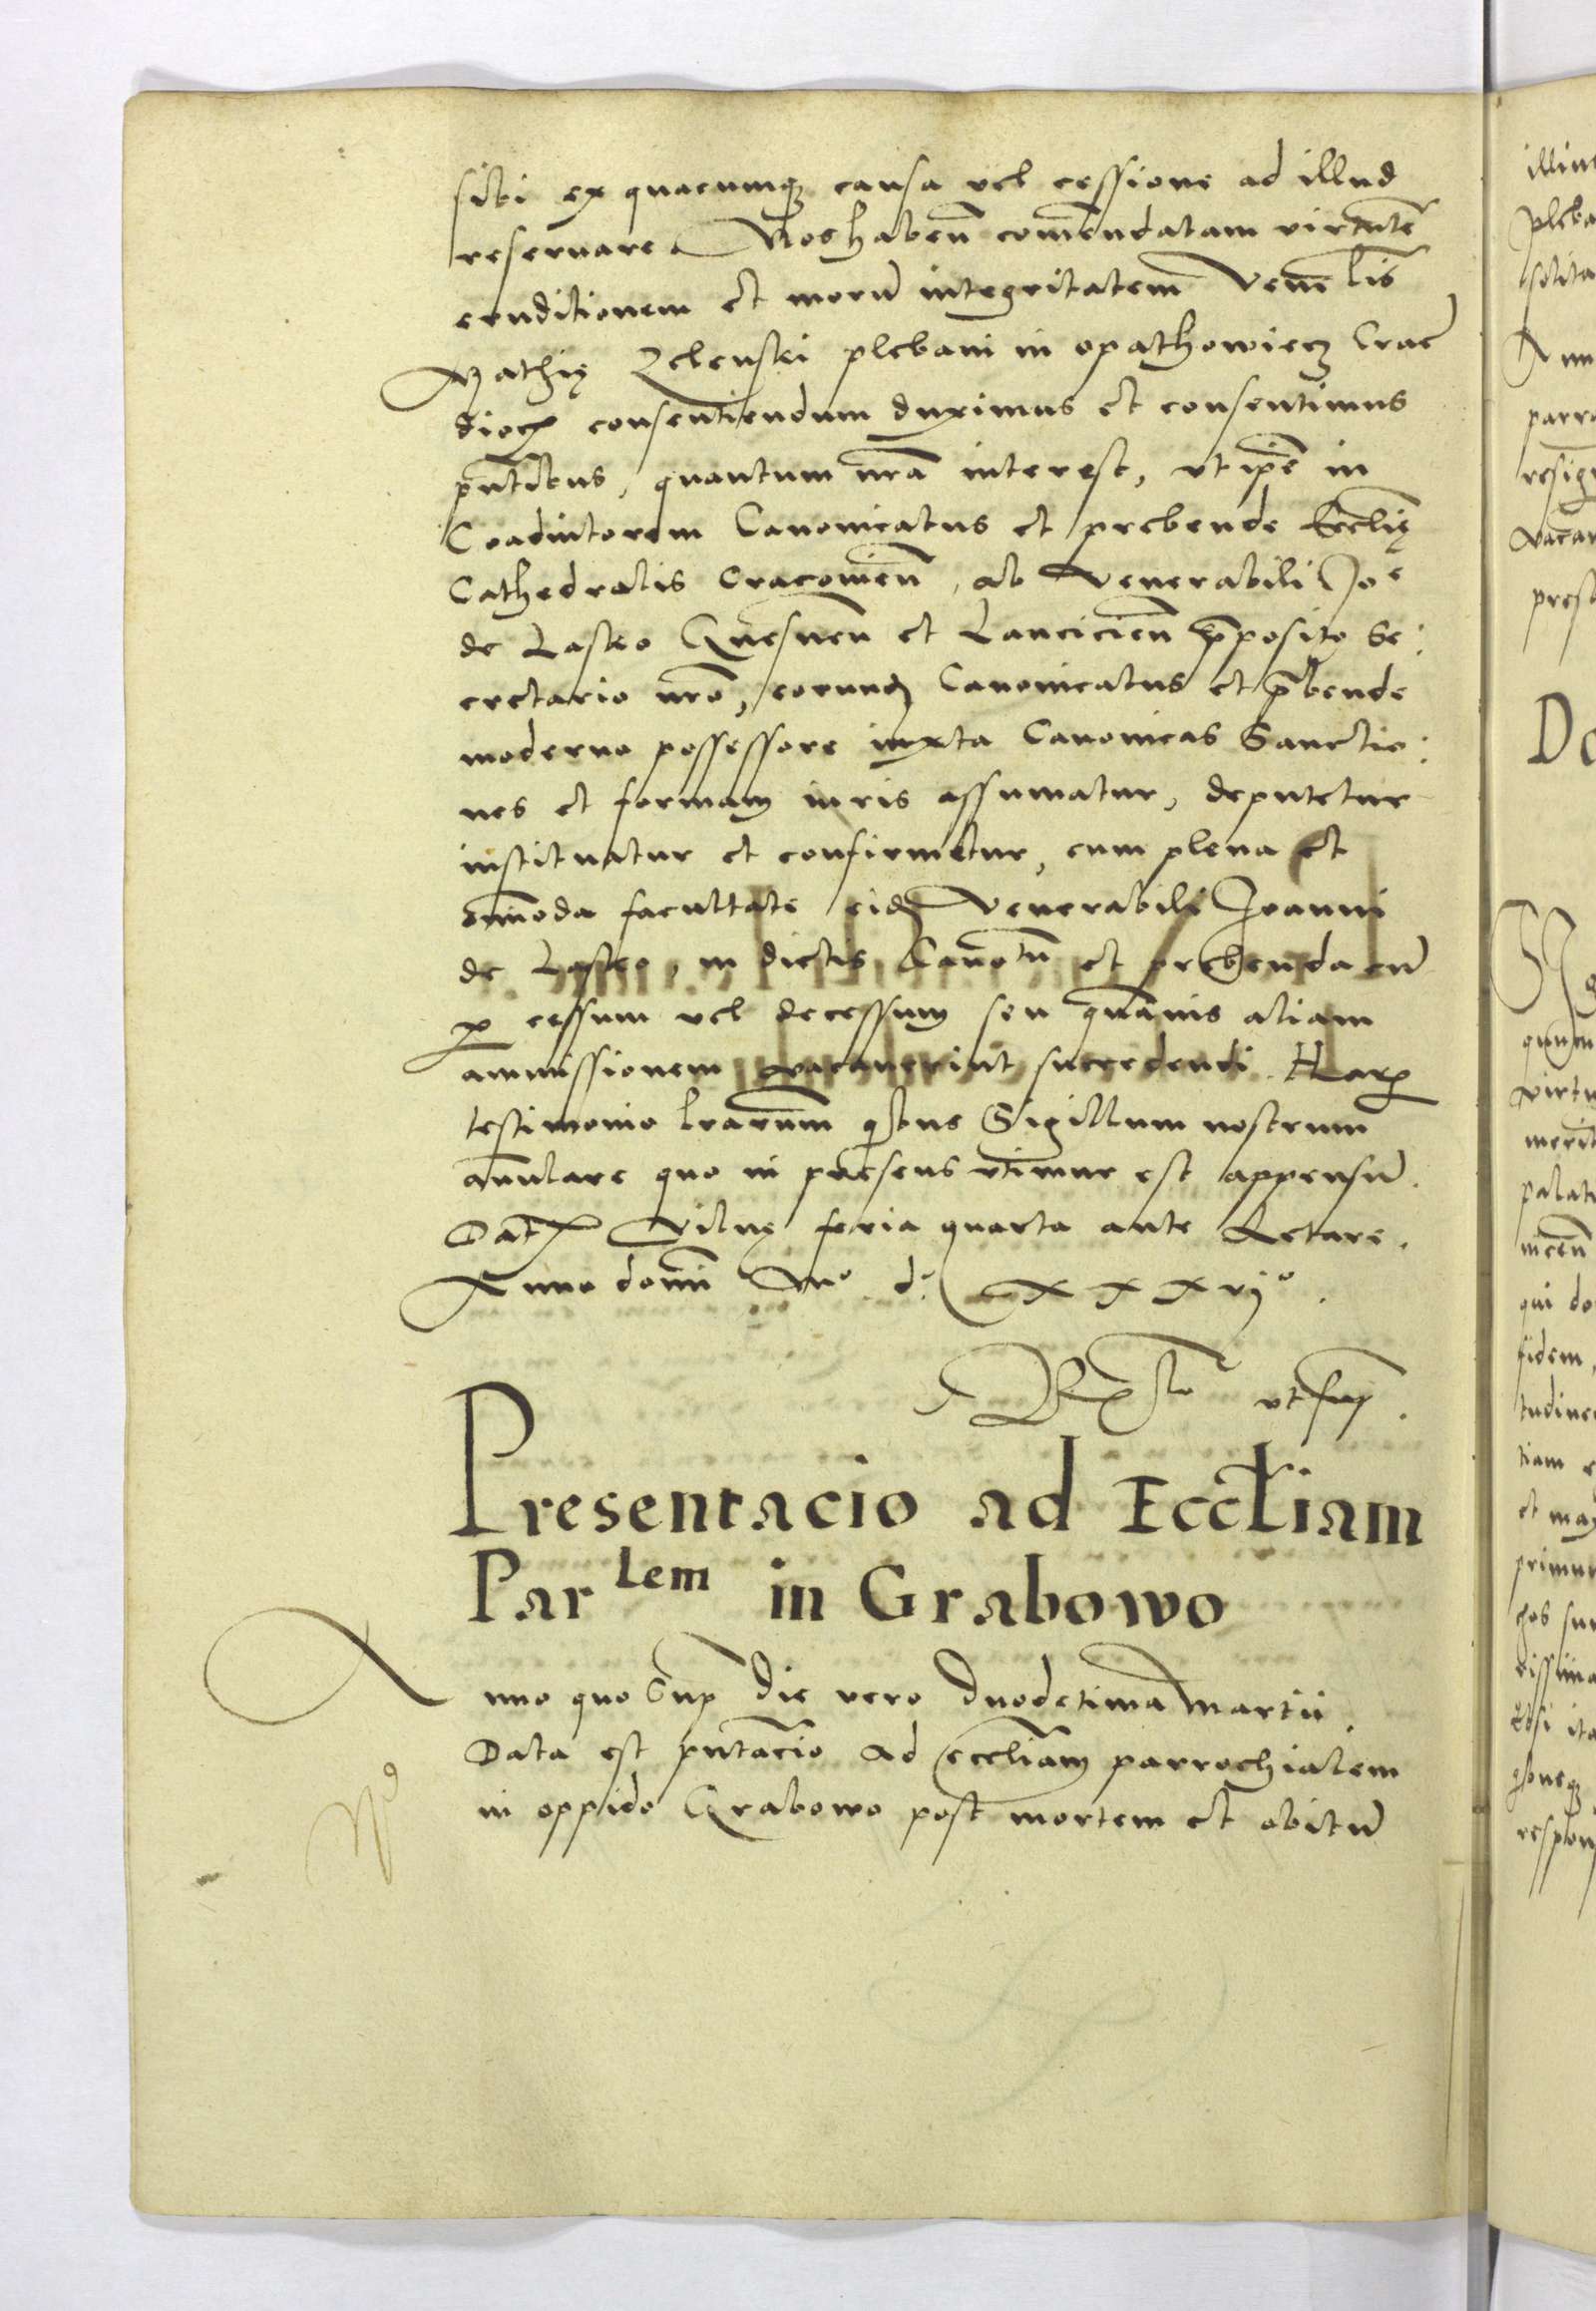 sibi ex quacumq3 causa vel cessione ad illud
reservare. Nos habeñ com̃endatam virtutẽ
eruditionem et morũ integritatem Veñelis
Mathię Zelenski plebani in opathowiecz Crac̃
dioc̃ consentiendum duximus et consentimus
p̃ntibus, quantum nr̃a interest, vt ip̃e in
Coadiutorem Canonicatus et prebende Eccl̃ię
Cathedralis Cracovieñ, ab Venerabili Joe
de Lasko Gnesneñ et Lancicieñ p̃posito Se:
cretario nr̃o, eorund Canonicatus et p̃bende
moderno possessore iuxta Canonicas Sanctio:
nes et formam iuris assumatur, deputetur
instituatur et confirmetur, cum plena et
om̃oda facultate eid Venerabili Joanni
de Lasko, in dictis Canõtu et prebenda cũ
p cessum vel decessum seu quamvis aliam
ammissionem vacaverint succedendi. Harꝝ
testimonio lr̃arum qibus Sigillum nostrum
añulare quo in presens vtimur est appensũ.
Dat̃ Vilnę feria quarta ante Letare.
Anno domĩ Mo. do. xxxvjo.
Rlo vt sup̃.
Presentacio ad Eccl̃iam
Parlem in Grabowo
Anno quo Sup̃ die vero duodecima Martii.
Data est p̃ntacio ad eccl̃iam parrochialem
in oppido Grabowo post mortem et obitũ
illius
pleba
solita
Ann
parro
resign
vacan
prese
De
quum
virtu
merit
palati
qui do
fidem,
tudine
tiam e
et may
primum